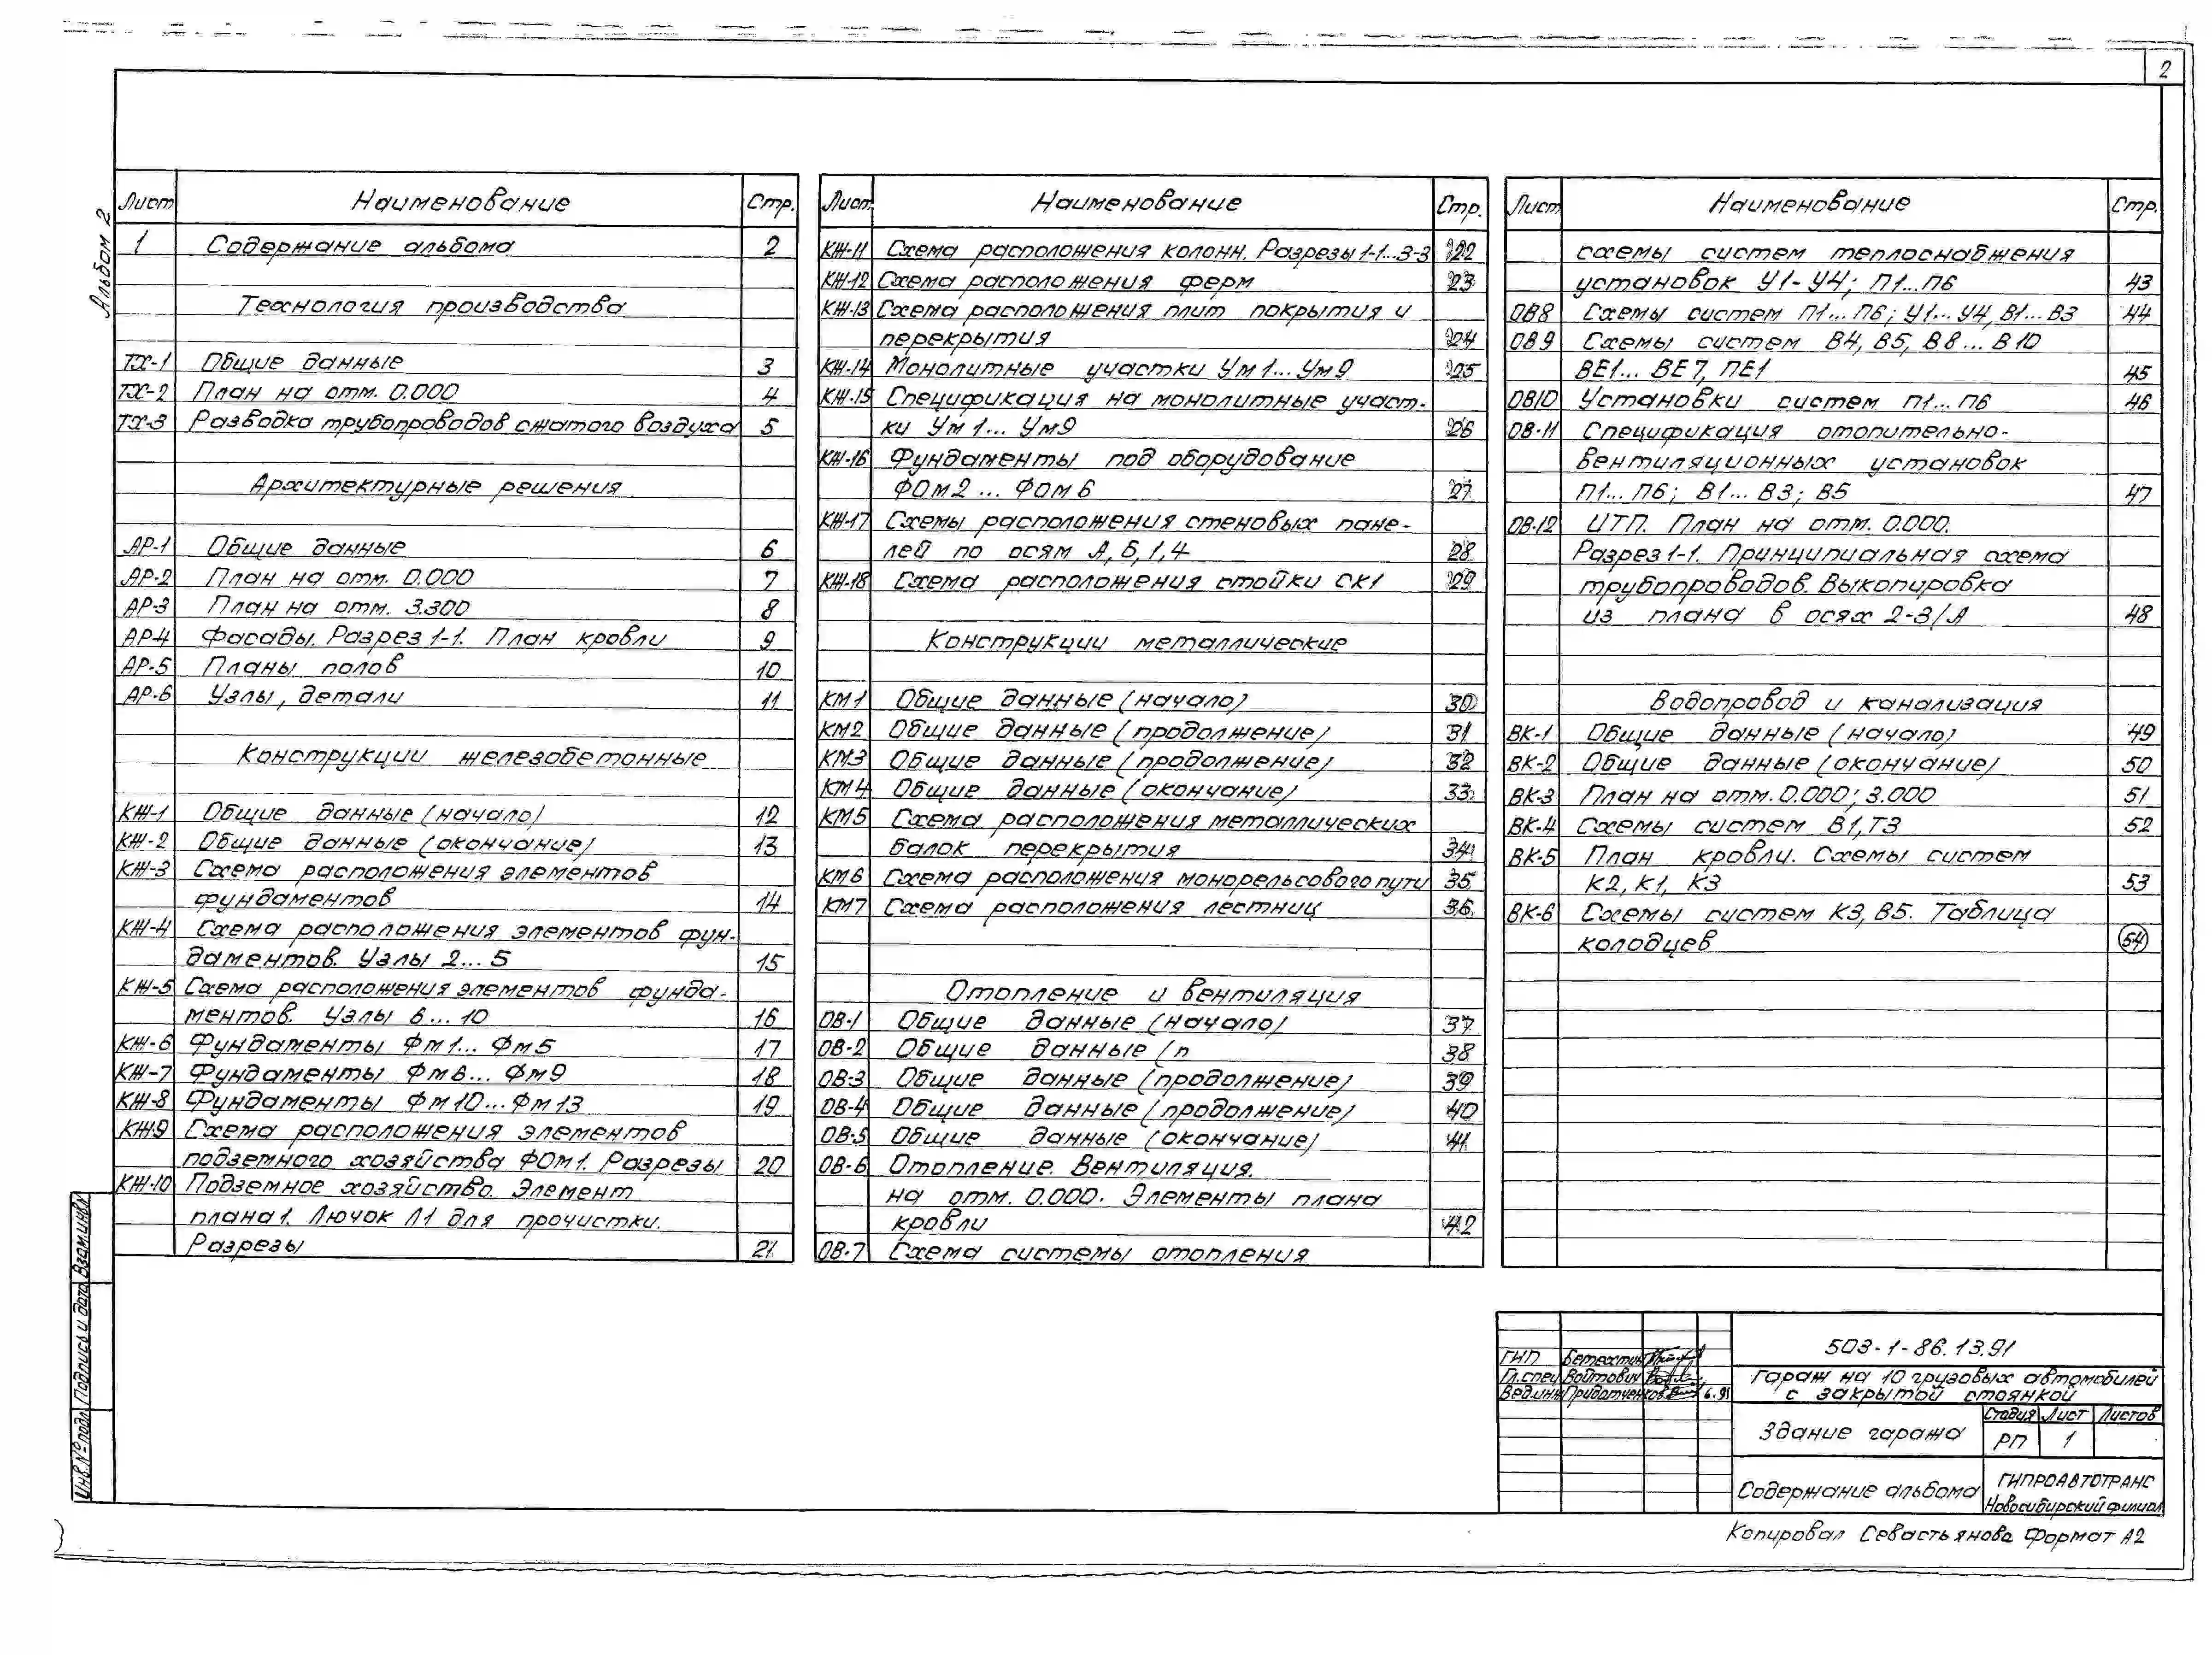 2
Альбом 2
Лист Наименование Стр.
1 Содержание альбома 2
Технология производства
ТХ-1 Общие данные 3
ТХ-2 План на отм. 0.000 4
ТХ-3 Разводка трубопроводов сжатого воздуха 5
Архитектурные решения
АР-1 Общие данные 6
АР-2 План на отм. 0.000 7
АР-3 План на отм. 3.300 8
АР-4 Фасады. Разрез 1-1. План кровли 9
АР-5 Планы полов 10
АР-6 Узлы, детали 11
Конструкции железобетонные
КЖ-1 Общие данные (начало) 12
КЖ-2 Общие данные (окончание) 13
КЖ-3 Схема расположения элементов
фундаментов 14
КЖ-4 Схема расположения элементов фун-
даментов. Узлы 2...5 15
КЖ-5 Схема расположения элементов фунда-
ментов. Узлы 6...10 16
КЖ-6 Фундаменты Фм1... Фм5 17
КЖ-7 Фундаменты Фм6... Фм9 18
КЖ-8 Фундаменты Фм10...Фм13 19
КЖ9 Схема расположения элементов
подземного хозяйства ФОм1. Разрезы 20
КЖ-10 Подземное хозяйство. Элемент
плана 1. Лючок Л1 для прочистки.
Разрезы 21
Лист Наименование Стр.
КЖ-11 Схема расположения колонн. Разрезы 1-1...3-3 22
КЖ-12 Схема расположения ферм 23
КЖ-13 Схема расположения плит покрытия и
перекрытия 24
КЖ-14 Монолитные участки Ум1... Ум9 25
КЖ-15 Спецификация на монолитные участ-
ки Ум1... Ум9 26
КЖ-16 Фундаменты под оборудование
ФОм2 ... ФОм6 27
КЖ-17 Схемы расположения стеновых пане-
лей по осям А, Б, 1, 4 28
КЖ-18 Схема расположения стойки СК1 29
Конструкции металлические
КМ1 Общие данные (начало) 30
КМ2 Общие данные (продолжение) 31
КМ3 Общие данные (продолжение) 32
КМ4 Общие данные (окончание) 33
КМ5 Схема расположения металлических
балок перекрытия 34
КМ6 Схема расположения монорельсового пути 35
КМ7 Схема расположения лестниц 36
Отопление и вентиляция
ОВ-1 Общие данные (начало) 37
ОВ-2 Общие данные (п 38
ОВ-3 Общие данные (продолжение) 39
ОВ-4 Общие данные (продолжение) 40
ОВ-5 Общие данные (окончание) 41
ОВ-6 Отопление. Вентиляция.
на отм. 0.000. Элементы плана
кровли 42
ОВ-7 Схема системы отопления
Лист Наименование Стр.
схемы систем теплоснабжения
установок У1-У4; П1...П6 43
ОВ8 Схемы систем П1...П6; У1...У4, В1...В3 44
ОВ9 Схемы систем В4, В5, В8...В10
ВЕ1... ВЕ7, ПЕ1 45
ОВ10 Установки систем П1...П6 46
ОВ-11 Спецификация отопительно-
вентиляционных установок
П1...П6; В1...В3; В5 47
ОВ-12 ИТП. План на отм. 0.000.
Разрез 1-1. Принципиальная схема
трубопроводов. Выкопировка
из плана в осях 2-3/А 48
Водопровод и канализация
ВК-1 Общие данные (начало) 49
ВК-2 Общие данные (окончание) 50
ВК-3 План на отм. 0.000; 3.000 51
ВК-4 Схемы систем В1, Т3 52
ВК-5 План кровли. Схемы систем
К2, К1, К3 53
ВК-6 Схемы систем К3, В5. Таблица
колодцев 54
Инв.№подл. Подпись и дата Взам.инв.№
503-1-86.13.91
ГИП Бетехтин
Гл.спец Войтович
Вед.инж Придатченков 6.91
Гараж на 10 грузовых автомобилей
с закрытой стоянкой
Здание гаража
Стадия Лист Листов
РП 1
Содержание альбома
ГИПРОАВТОТРАНС
Новосибирский филиал
Копировал Севастьянова Формат А2